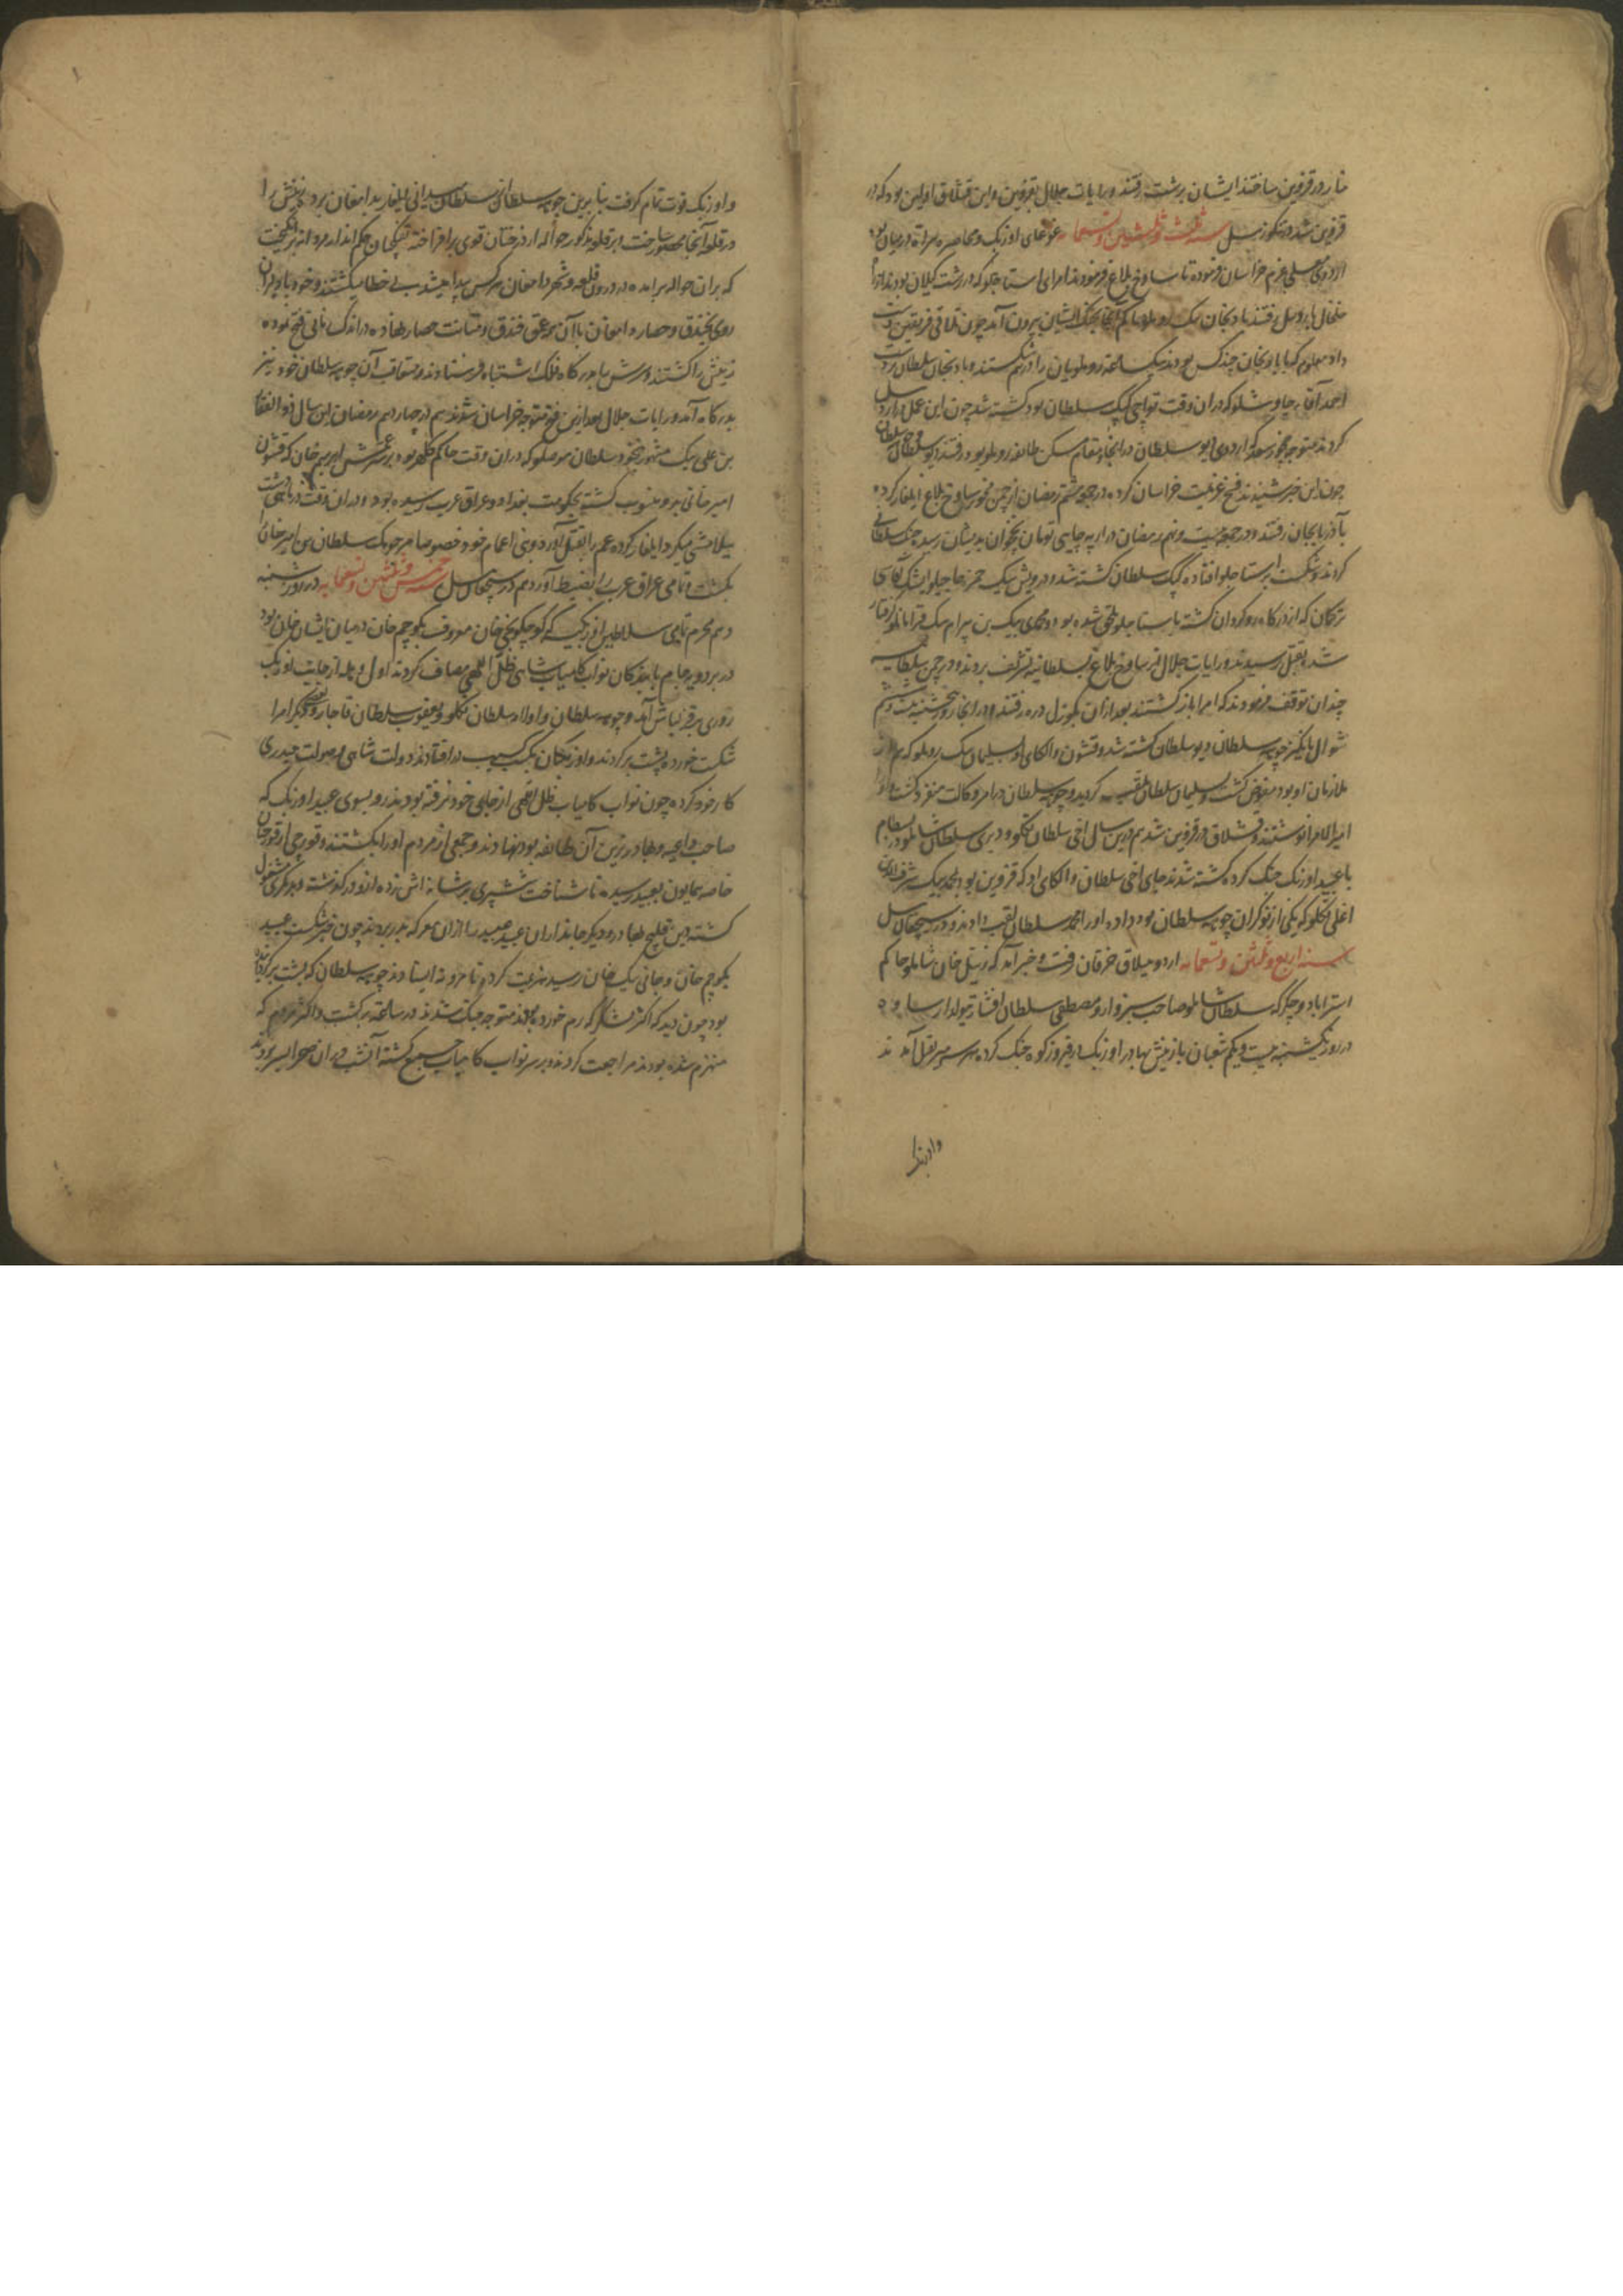 در قزوین ساختند ایشان برشت رفتند و رایات جلال بقزوین و این قشلاق اولین بود که در
قزوین شد و تنکوزئیل سنه ثلث و ثلثین و تسعمایه غوغای اوزبک و محاصره هراة در میان بود
اردوی معلی بعزم خراسان فرموده تا ساوخ بلاغ فرمودند امرای استاجلو که در رشت کیلان بودند از راه
خلخال باردبیل رفتند بادنجان بیک روملو حاکم آنجا بجنک ایشان بیرون آمد چون تلاقی فریقین دست
داد معلوم که با بادنجان چند کس بودند بیک ساعته روملویان را درهم شکستند و بادنجان سلطان بدست
احمد آقای چاوشلو که در ان وقت تواچی کپک سلطان بود کشته شد چون این عمل در اردبیل
کردند متوجه چخور سعد از اردوی دیو سلطان در آنجا و مقام سکن طائفه روملو بود رفتند دیو سلطان و چوهه سلطان
چون این خبر شنیدند فسخ عزیمت خراسان کرده در جمعه هشتم رمضان از چمن ساوخ بلاغ ایلغار کرده
بآذربایجان رفتند و در جمعه بیست و نهم رمضان در ارپه چایی تومان نخجوان بدیشان رسید جنک سلطانی
کردند و شکست بر استاجلو افتاده کپک سلطان کشته شد و درویش بیک حمزه حاجیلو ایشک آقاسی
ترکمان که از درکاه روکردان کشته باستاجلو ملحق شده بود و محمدی بیک بن بیرام بیک قرامانلو کرفتار
شد بقتل رسیدند و رایات جلال از ساوخ بلاغ بسلطانیه تشریف بردند و در چمن سلطانیه
چندان توقف فرمودند که امرا باز کشتند بعد از ان بکوزل دره رفتند و در انجا روز پنجشنبه بیست و ششم
شوال بانکیز چوهه سلطان دیو سلطان کشته شد و قشون و الکای او بسلیمان بیک روملو که هم از
ملازمان او بود مفوض کشت و بسلیمان سلطان ملقب کردید و چوهه سلطان در امر وکالت منفرد کشت و او را
امیر الامرا نوشتند و قشلاق در قزوین شد هم درین سال اخی سلطان تکلو و دمری سلطان شاملو در بسطام
با عبید اوزبک جنک کرده کشته شدند جای اخی سلطان و الکای او که قزوین بود بمحمد بیک شرف الدین
اغلی تکلو که یکی از نوکران چوهه سلطان بود داده او را محمد سلطان لقب دادند و در سیچقان ئیل
سنه اربع و ثلثین و تسعمایه اردو بییلاق خرقان رفت و خبر آمد که زینل خان شاملو حاکم
استراباد و چکرکه سلطان شاملو صاحب سبزوار و مصطفی سلطان افشار تیولدار ساوه
در روز یکشنبه بیست و یکم شعبان با زینش بهادر اوزبک در فیروزکوه جنک کرده هر سه میر بقتل آمدند
و اوزبک
و اوزبک قوت تمام کرفت بنا برین چوهه سلطان سلطان سلیمانی ایلغار بدامغان برده زینش را
در قلعه آنجا محصور ساخت و بر قلعه مذکور حواله از درختان قوی برافراخته تفنکچیان حکم انداز مردانه برانکیخت
که بر ان حواله برآمده در درون قلعه و شهر دامغان هر کس پیدا میشد بی خطا میکشتند و خود با دلیران
روی بخندق و حصار دامغان با آن عمق خندق و متانت حصار نهاده در اندک زمانی فتح نموده
زینش را کشتند و سرش بدرکاه فلک اشتباه فرستادند و متعاقب آن چوهه سلطان خود نیز
بدرکاه آمد و رایات جلال بعد ازین فتح متوجه خراسان شدند هم در چهاردهم رمضان این سال ذوالفقار
بن علی بیک مشهور بنخود سلطان موصلو که در ان وقت حاکم کلهر بود بر سر عمش ابرهیم خان که قشون
امیرخانی بدو منسوب کشته بحکومت بغداد و عراق عرب رسیده بود و در ان وقت در ماهی دشت
ییلامشی میکرد ایلغار کرده عم را بقتل آورد و بنی اعمام خود خصوصا میرجوبک سلطان بن امیرخان را
بکشت و تمامی عراق عرب را بضبط آورد هم در سیچقان ئیل سنه خمس و ثلثین و تسعمایه در روز شنبه
دهم محرم تمامی سلاطین اوزبک که کوچکونجی خان معروف بکوچم خان در میان ایشان خان بود
در بردویه جام با بندکان نواب کامیاب شاهی ظل اللهی مصاف کردند اول وهله از جانب اوزبک
زوری بر قزلباش آمد و چوهه سلطان و اولامه سلطان تکلو و یعقوب سلطان قاجار و بعضی دیکر امرا
شکست خورده پشت برکردند و اوزبکان بکسب درافتادند دولت شاهی و صولت حیدری
کار خود کرده چون نواب کامیاب ظل اللهی از جای خود نرفته بودند رو بسوی عبید اوزبک که
صاحب داعیه و بهادرترین آن طائفه بود نهادند و جمعی از مردم او را بکشتند و قورچی از قورچیان
خاصه همایون بعبید رسیده ناشناخت شمشیری بر شانه اش زده ازو درکذشته و بدیکری مشغول
کشته و این قلیج بهادر و دیکر جانداران عبید عبید را از ان معرکه بدر بردند چون خبر شکست عبید
بکوچم خان و جانی بیک خان رسید هزیمت کرده تا مرو نه ایستادند چوهه سلطان که پشت برکردانده
بود چون دید که اکثر لشکر که رم خورده بودند متوجه جنک شدند در ساعت برکشت و اکثر مردم که
منهزم شده بودند مراجعت کردند و بر سر نواب کامیاب جمع کشته آنشب در ان صحرا بسر بردند